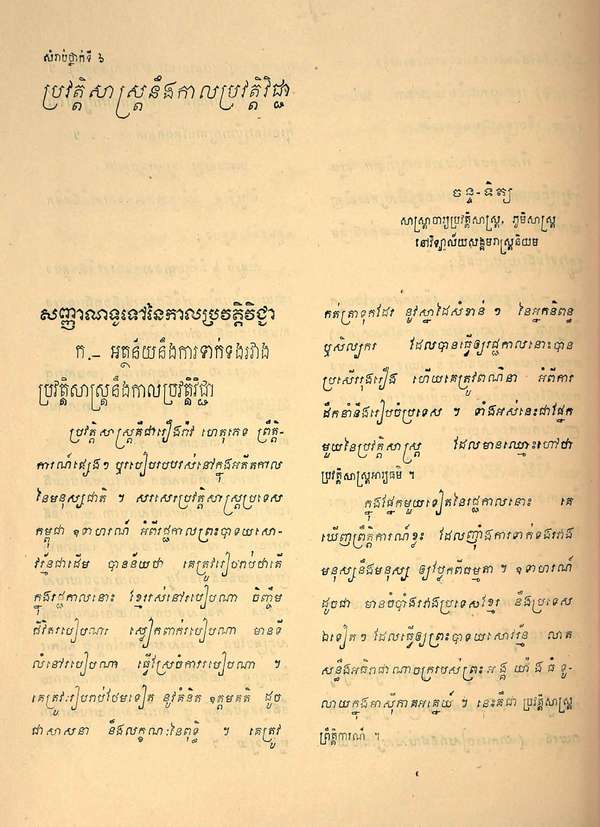 សំរាប់ថ្នាក់ទី ៦
ប្រវត្តិសាស្ត្រនឹងកាលប្រវត្តិវិជ្ជា
ចន្ទ-ទិត្យ
សាស្ត្រាចារ្យប្រវត្តិសាស្ត្រ, ភូមិសាស្ត្រ
នៅវិទ្យាល័យសង្គមរាស្ត្រនិយម
សញ្ញាណទូទៅនៃកាលប្រវត្តិវិជ្ជា
ក.– អត្ថន័យនឹងការទាក់ទងរវាង
ប្រវត្តិសាស្ត្រនឹងកាលប្រវត្តិវិជ្ជា
ប្រវត្តិសាស្ត្រគឺជារឿងរ៉ាវ ហេតុភេទ ព្រឹត្តិ-
ការណ៍ផ្សេងៗ ឬរបៀបរបរស់នៅក្នុងអតីតកាល
នៃមនុស្សជាតិ ។ សរសេរប្រវត្តិសាស្ត្រប្រទេស
កម្ពុជា ឧទាហរណ៍ អំពីរជ្ជកាលព្រះបាទយសោ-
វរ្ម័នជាដើម បានន័យថា គេត្រូវរៀបរាប់ថាតើ
ក្នុងរជ្ជកាលនោះ ខ្មែររស់នៅរបៀបណា ចិញ្ចឹម
ជីវិតរបៀបណា ស្លៀកពាក់របៀបណា មានទី
លំនៅរបៀបណា ធ្វើស្រែចំការរបៀបណា ។
គេត្រូវរៀបរាប់ថែមទៀត នូវគំនិត ឧត្តមគតិ ដូច
ជាសាសនា នឹងលក្ខណៈនៃពុទ្ធិ ។ គេត្រូវ
កត់ត្រាទុកដែរ នូវស្នាដៃសំខាន់ៗ នៃអ្នកនិពន្ធ
ឬសិល្បករ ដែលបានធ្វើឲ្យរជ្ជកាលនោះបាន
ប្រសើររុងរឿង ហើយគេត្រូវពណ៌នា អំពីការ
ដឹកនាំនឹងរៀបចំប្រទេស ។ ទាំងអស់នេះជាផ្នែក
មួយនៃប្រវត្តិសាស្ត្រ ដែលមានឈ្មោះហៅថា
ប្រវត្តិសាស្ត្រអារ្យធម៌ ។
ក្នុងផ្នែកមួយទៀតនៃរជ្ជកាលនោះ គេ
ឃើញព្រឹត្តិការណ៍ខ្លះ ដែលញ៉ាំងការទាក់ទងរវាង
មនុស្សនឹងមនុស្ស ឲ្យប្លែកពីធម្មតា ។ ឧទាហរណ៍
ដូចជា មានចំបាំងរវាងប្រទេសខ្មែរ នឹងប្រទេស
ឯទៀតៗ ដែលធ្វើឲ្យព្រះបាទយសោវរ្ម័ន លាត
សន្ធឹងអធិរាជាណាចក្ររបស់ព្រះអង្គ យ៉ាងធំទូ-
លាយក្នុងអាស៊ីភាគអគ្នេយ៍ ។ នេះគឺជា ប្រវត្តិសាស្ត្រ
ព្រឹត្តិការណ៍ ។